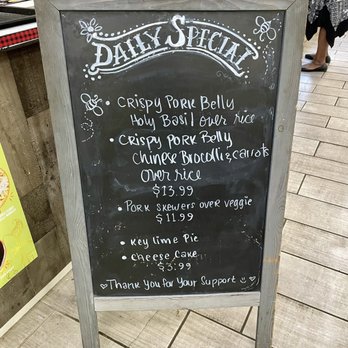 DAILY SPECIAL
• CRISPY PORK BELLY
HOLY BASIL OVER RICE
• CRISPY PORK BELLY
CHINESE BROCOLLI & CARROTS
OVER RICE
$13.99
• PORK SKEWERS OVER VEGGIE
$11.99
• KEY LIME PIE
• CHEESE CAKE
$3.99
THANK YOU FOR YOUR SUPPORT